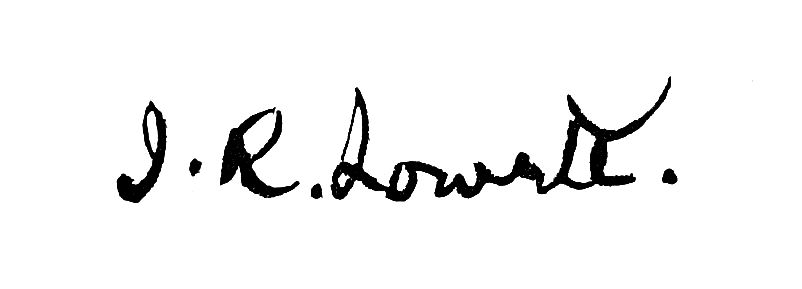 J. R. Lowell.